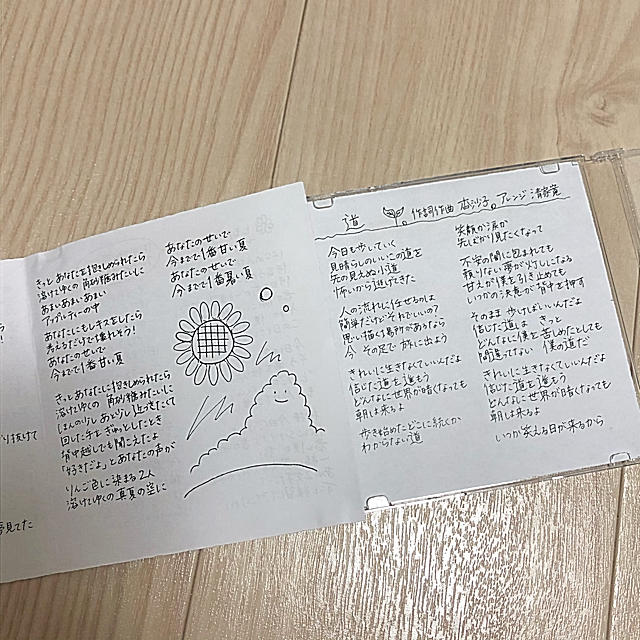 り抜けて
夢見てた
きっと あなたを抱きしめられたら
溶けてゆくの 角砂糖みたいに
あまいあまいあまい
アップルティーの中
あなたにもしキスをしたら
考えるだけで壊れそう!
あなたのせいで
今までで1番甘い夏
きっとあなたに抱きしめられたら
溶けてゆくの 角砂糖みたいに
回した手を ぎゅっとしたとき
背中越しでも聞こえたよ
「好きだよ」とあなたの声が
りんご色に染まる2人
溶けてゆくの 真夏の空に
あなたのせいで
今までで1番甘い夏
あなたのせいで
今までで1番暑い夏
道 作詞作曲 杏沙子。アレンジ 清家寛
今日も歩いていく
見晴らしのいいこの道を
先の見えぬ小道
怖いから逃げてきた
人の流れに任せるのは
簡単だけどそれでいいの?
思い描く場所があるなら
今 その足で 旅に出よう
きれいに生きなくていいんだよ
信じた道を進もう
どんなに世界が暗くなっても
朝は来るよ
歩き始めたどこに続くか
わからない道
笑顔か涙か
先ばかり見たくなって
不安の闇に包まれても
頼りない夢が灯しになる
甘えが僕を引き止めても
いつかの決意が背中を押す
そのまま 歩けばいいんだよ
信じた道は きっと
どんなに僕を 苦しめたとしても
間違ってない 僕の道だ
きれいに生きなくていいんだよ
信じた道を進もう
どんなに世界が暗くなっても
朝は来るよ
いつか笑える日が来るから